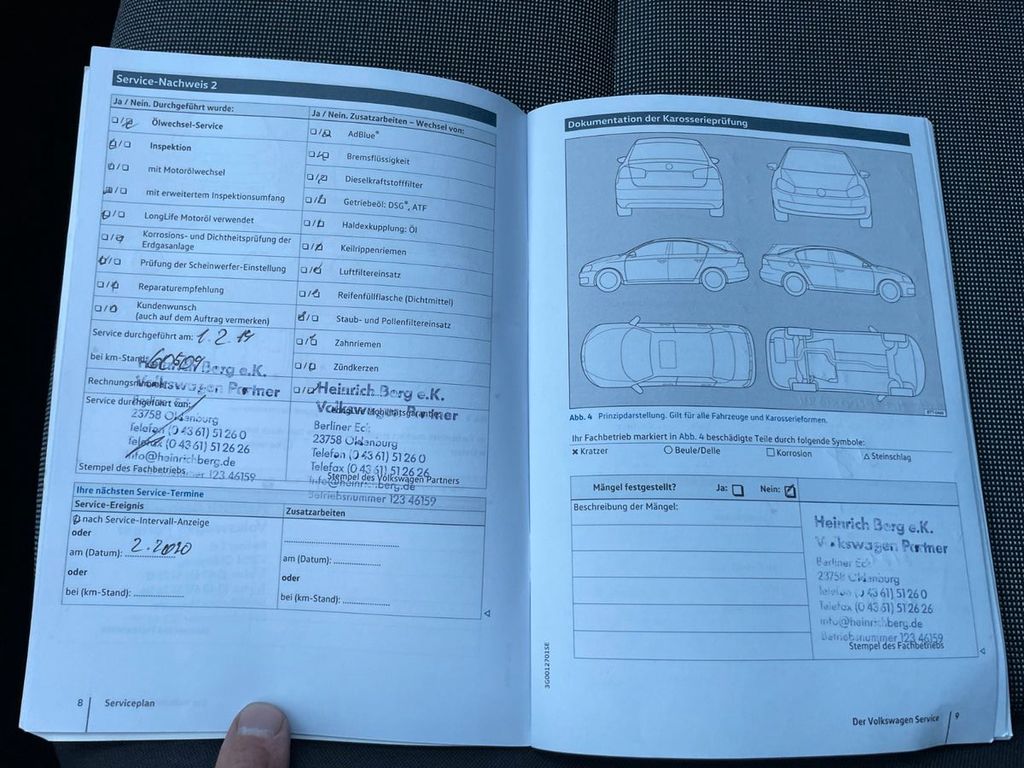 Service-Nachweis 2
Ja / Nein. Durchgeführt wurde:
Ölwechsel-Service
Inspektion
mit Motorölwechsel
mit erweitertem Inspektionsumfang
LongLife Motoröl verwendet
Korrosions- und Dichtheitsprüfung der
Erdgasanlage
Prüfung der Scheinwerfer-Einstellung
Reparaturempfehlung
Kundenwunsch
(auch auf dem Auftrag vermerken)
Ja / Nein. Zusatzarbeiten – Wechsel von:
AdBlue®
Bremsflüssigkeit
Dieselkraftstofffilter
Getriebeöl: DSG®, ATF
Haldexkupplung: Öl
Keilrippenriemen
Luftfiltereinsatz
Reifenfüllflasche (Dichtmittel)
Staub- und Pollenfiltereinsatz
Zahnriemen
Zündkerzen
Service durchgeführt am: 1.2.19
bei km-Stand: 60509
Service durchgeführt von:
Heinrich Berg e.K.
Volkswagen Partner
23758 Oldenburg
Telefon (0 43 61) 51 26 0
Telefax (0 43 61) 51 26 26
info@heinrichberg.de
123 46159
Stempel des Fachbetriebs
Heinrich Berg e.K.
Volkswagen Partner
Berliner Eck
23758 Oldenburg
Telefon (0 43 61) 51 26 0
Telefax (0 43 61) 51 26 26
info@heinrichberg.de
Betriebsnummer 123 46159
Stempel des Volkswagen Partners
Ihre nächsten Service-Termine
Service-Ereignis
nach Service-Intervall-Anzeige
oder
am (Datum): 2.2020
oder
bei (km-Stand):
Zusatzarbeiten
am (Datum):
oder
bei (km-Stand):
8 Serviceplan
Dokumentation der Karosserieprüfung
Abb. 4 Prinzipdarstellung. Gilt für alle Fahrzeuge und Karosserieformen.
Ihr Fachbetrieb markiert in Abb. 4 beschädigte Teile durch folgende Symbole:
× Kratzer ○ Beule/Delle □ Korrosion △ Steinschlag
Mängel festgestellt? Ja: Nein:
Beschreibung der Mängel:
Heinrich Berg e.K.
Volkswagen Partner
Berliner Eck
23758 Oldenburg
Telefon (0 43 61) 51 26 0
Telefax (0 43 61) 51 26 26
info@heinrichberg.de
Betriebsnummer 123 46159
Stempel des Fachbetriebs
3G0012701SE
Der Volkswagen Service 9